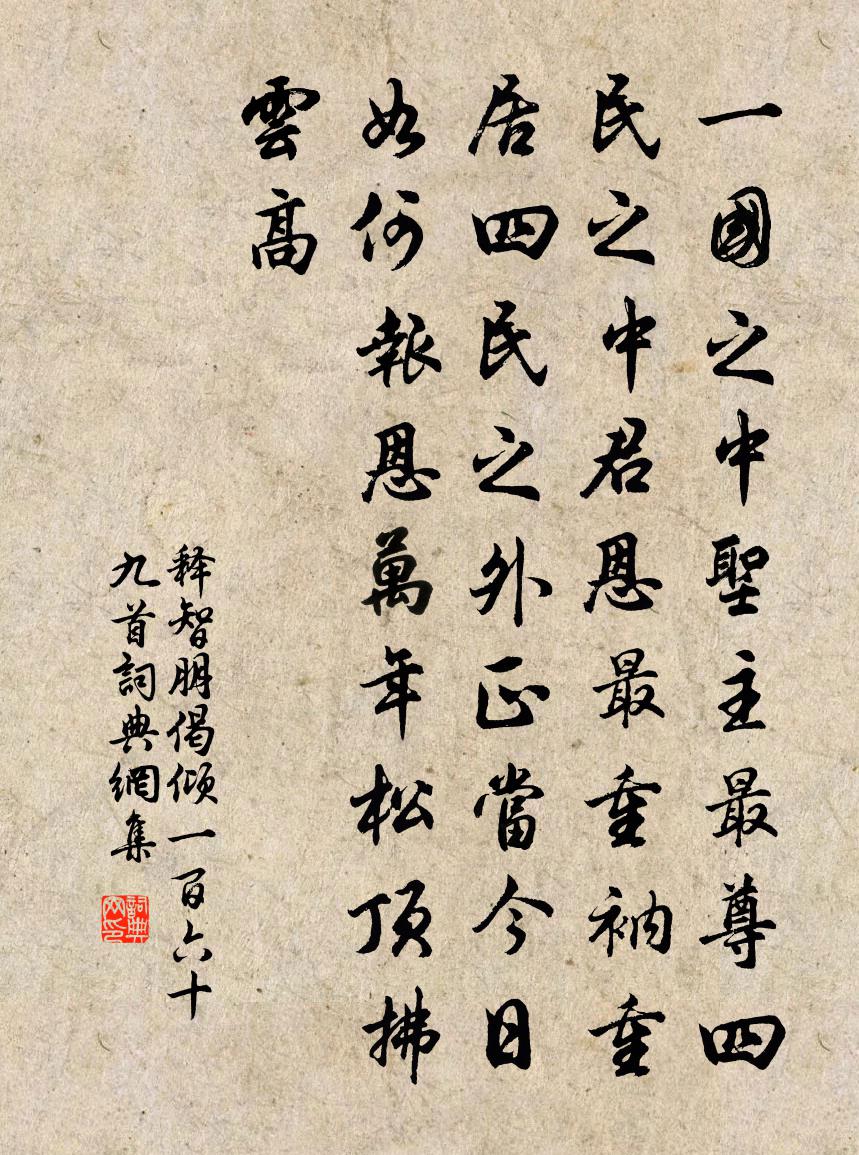 一國之中聖主最尊四
民之中君恩最重衲重
居四民之外正當今日
如何報恩萬年松頂拂
雲高
释智朋偈倾一百六十
九首詞典網集
詞典網印